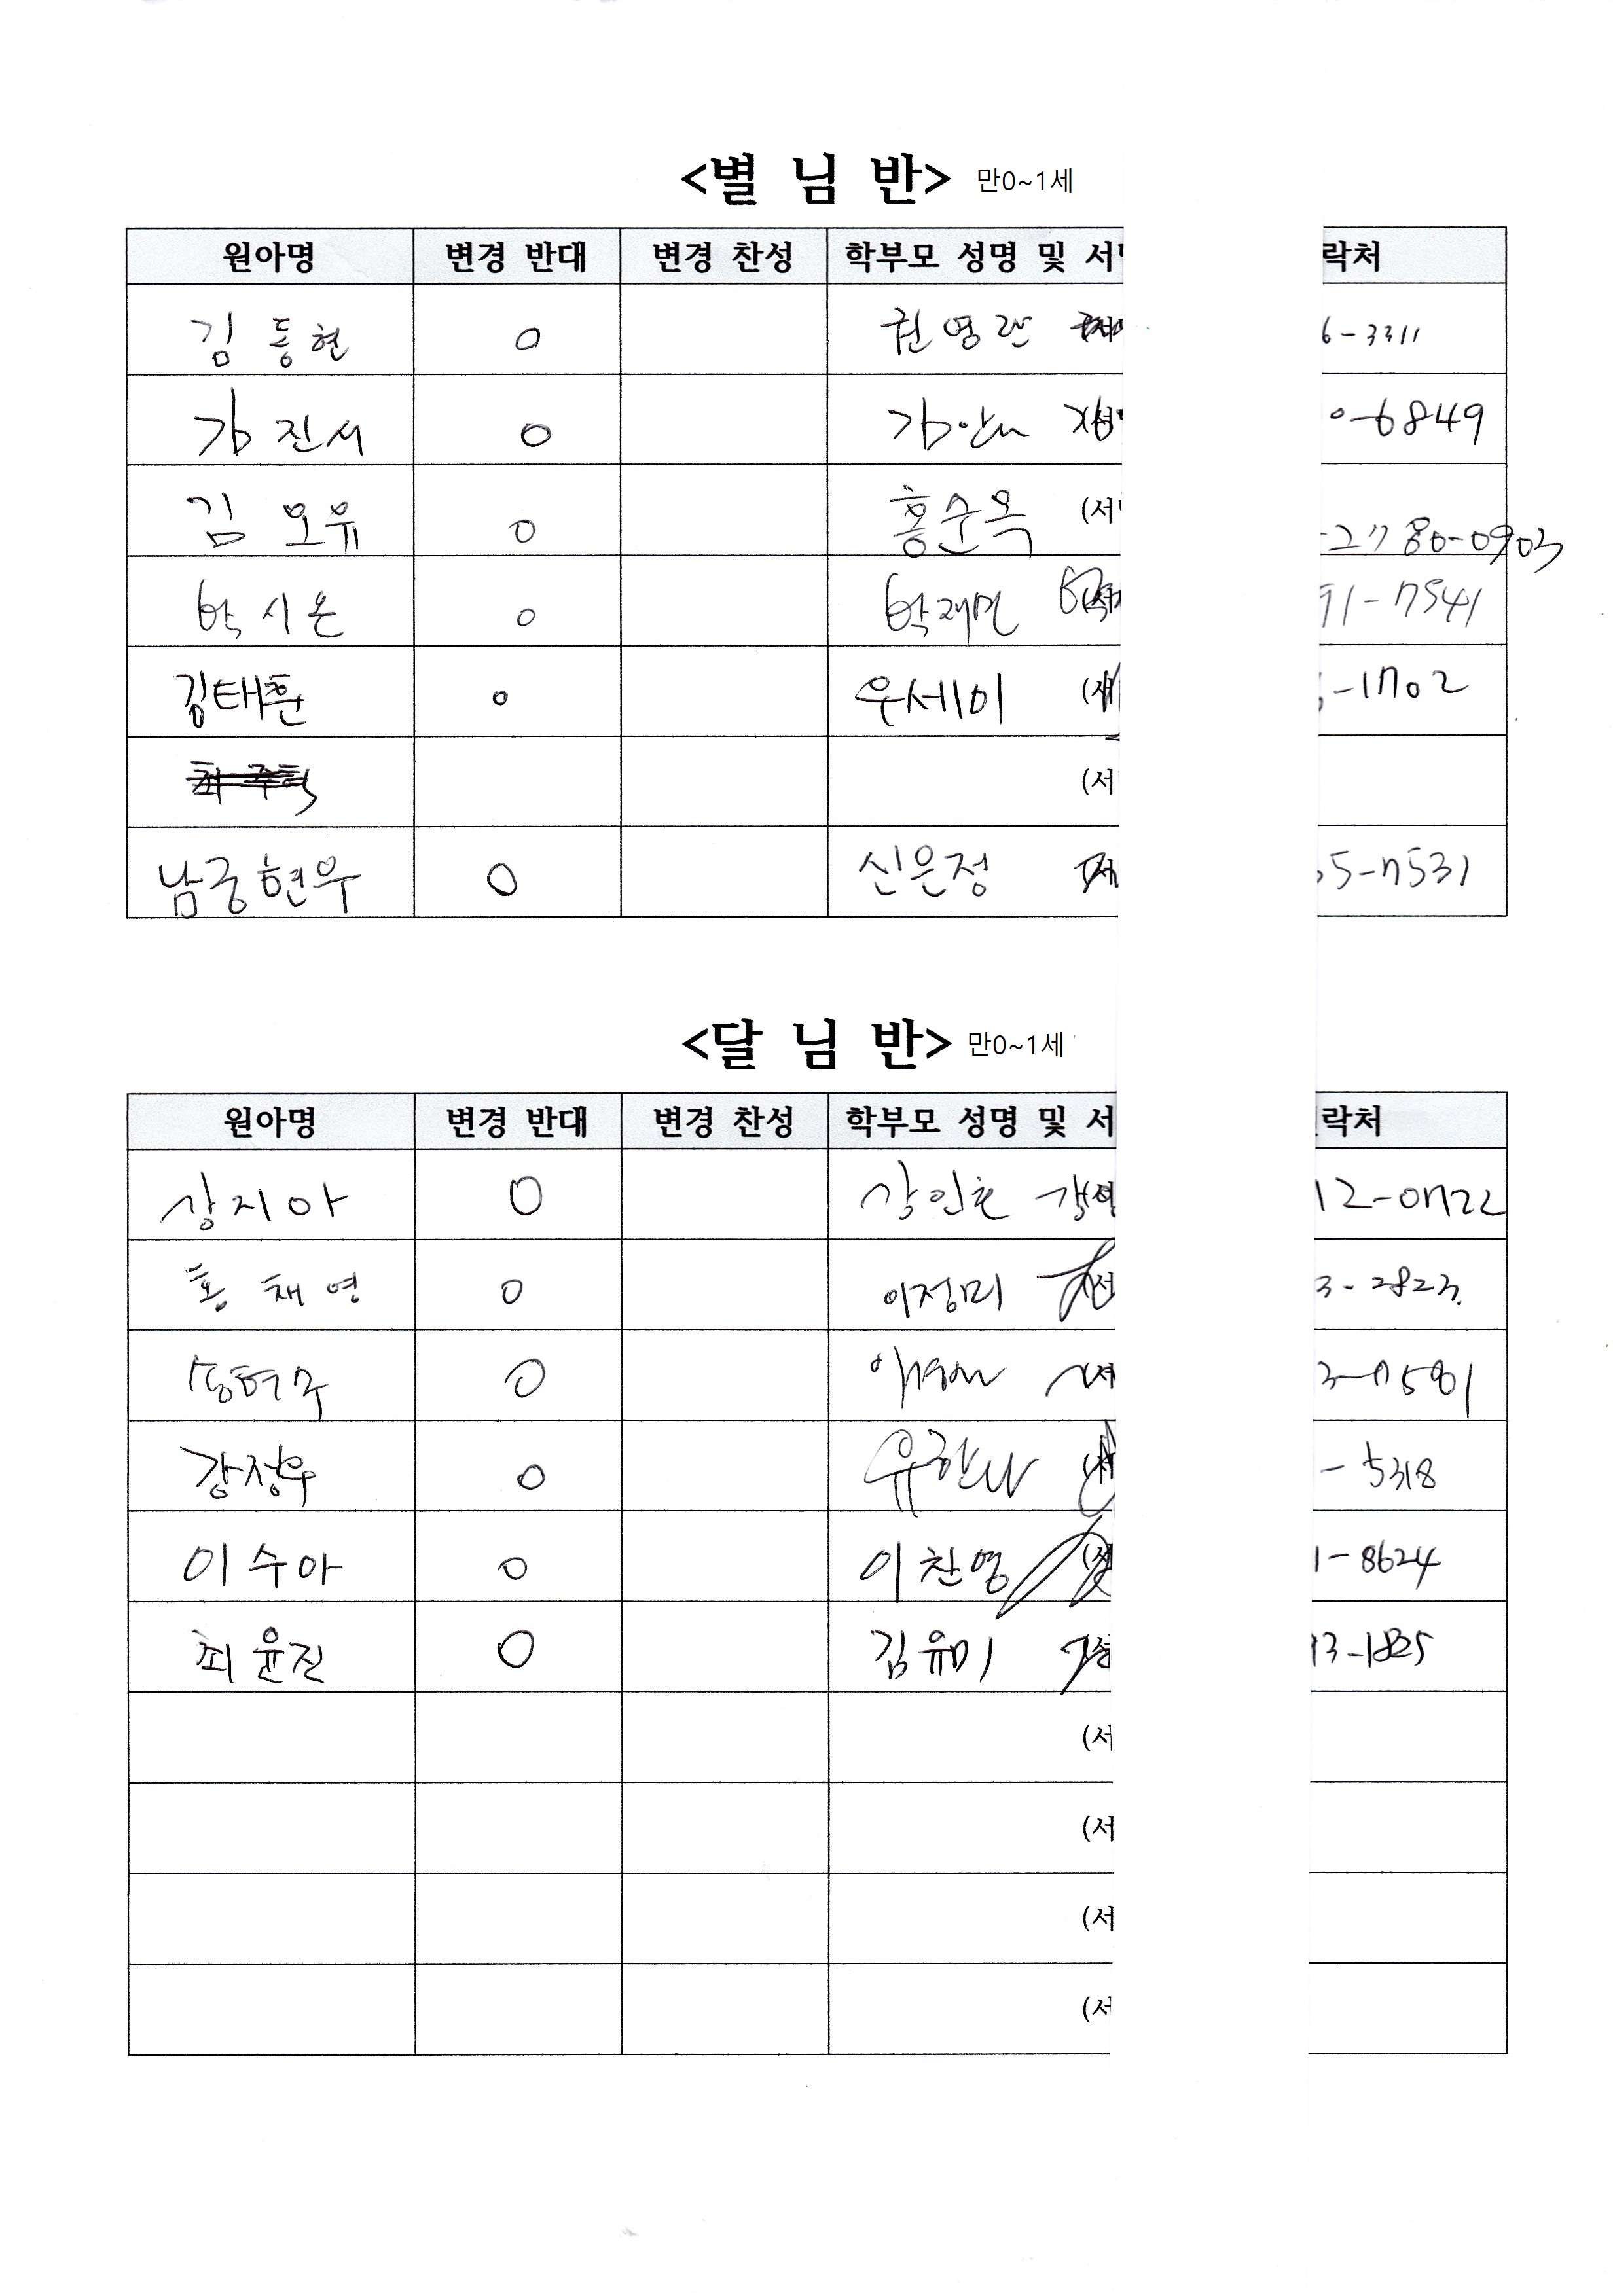 <별 님 반> 만0~1세
원아명 변경 반대 변경 찬성 학부모 성명 및 서 락처
김동현 O 권영란 6-3311
김진서 O 0-6849
김오유 O 홍순옥 (서 -2780-0903
박시온 O 박재민 91-7541
김태훈 O 우세미 -1702
(서
남궁현우 O 신은정 55-7531
<달 님 반> 만0~1세
원아명 변경 반대 변경 찬성 학부모 성명 및 서 락처
강지아 O 12-0722
홍채영 O 이정미 3-2823
O
강정우 O 유한나 -5318
이수아 O 이찬영 1-8624
최윤진 O 김유미 13-1825
(서
(서
(서
(서